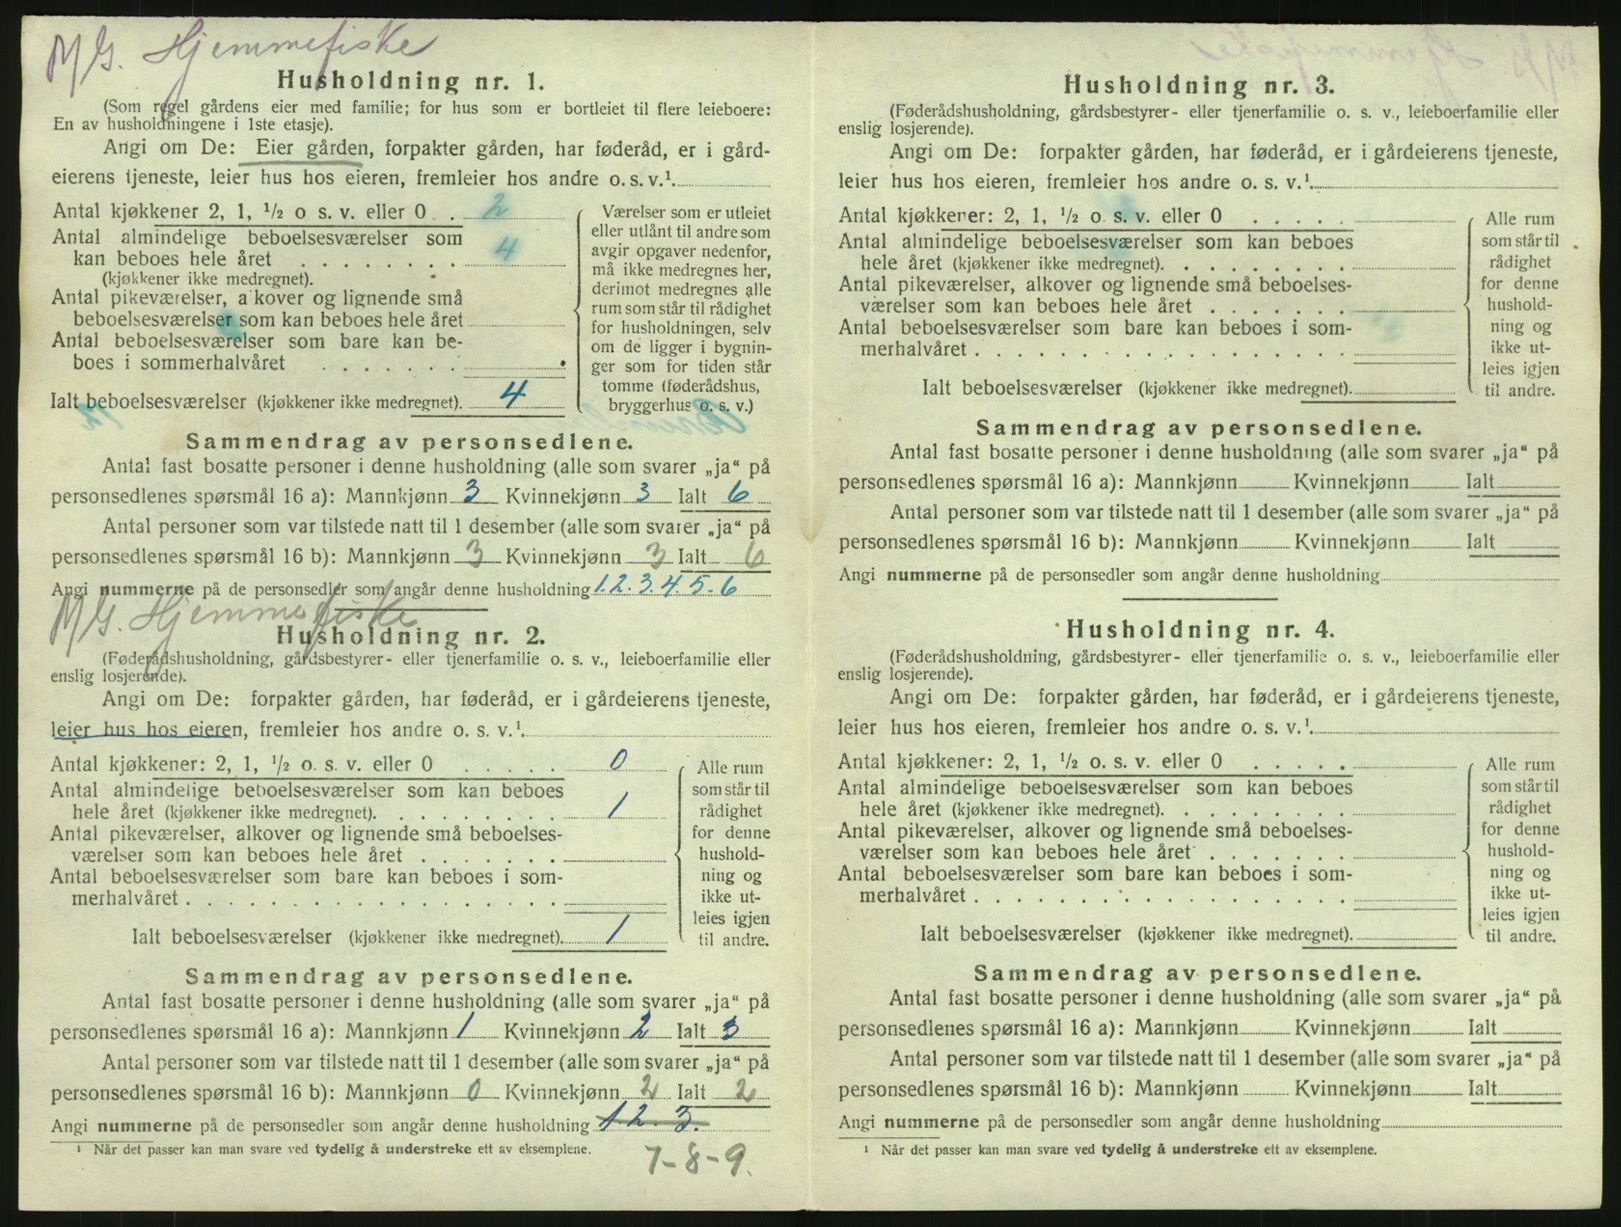 M/G. Hjemmefiske
Husholdning nr. 1.
(Som regel gårdens eier med familie; for hus som er bortleiet til flere leieboere:
En av husholdningene i 1ste etasje).
Angi om De: Eier gården, forpakter gården, har føderåd, er i gård-
eierens tjeneste, leier hus hos eieren, fremleier hos andre o. s. v.¹.
Antal kjøkkener 2, 1, ½ o s. v. eller 0 . 2
Antal almindelige beboelsesværelser som
kan beboes hele året . . . . . . . . 4
(kjøkkener ikke medregnet).
Antal pikeværelser, alkover og lignende små
beboelsesværelser som kan beboes hele året
Antal beboelsesværelser som bare kan be-
boes i sommerhalvåret . . . . . . .
Ialt beboelsesværelser (kjøkkener ikke medregnet). 4
Værelser som er utleiet
eller utlånt til andre som
avgir opgaver nedenfor,
må ikke medregnes her,
derimot medregnes alle
rum som står til rådighet
for husholdningen, selv
om de ligger i bygnin-
ger som for tiden står
tomme (føderådshus,
bryggerhus o. s. v.)
Sammendrag av personsedlene.
Antal fast bosatte personer i denne husholdning (alle som svarer „ja“ på
personsedlenes spørsmål 16 a): Mannkjønn 3 Kvinnekjønn 3 Ialt 6
Antal personer som var tilstede natt til 1 desember (alle som svarer „ja“ på
personsedlenes spørsmål 16 b): Mannkjønn 3 Kvinnekjønn 3 Ialt 6
Angi nummerne på de personsedler som angår denne husholdning 1.2.3.4.5-6
M/G. Hjemmefiske
Husholdning nr. 2.
(Føderådshusholdning, gårdsbestyrer- eller tjenerfamilie o. s. v., leieboerfamilie eller
enslig losjerende).
Angi om De: forpakter gården, har føderåd, er i gårdeierens tjeneste,
leier hus hos eieren, fremleier hos andre o. s. v.¹.
Antal kjøkkener: 2, 1, ½ o. s. v. eller 0 . . . . . 0
Antal almindelige beboelsesværelser som kan beboes
hele året (kjøkkener ikke medregnet). . . . . . . . 1
Antal pikeværelser, alkover og lignende små beboelses-
værelser som kan beboes hele året . . . . . . .
Antal beboelsesværelser som bare kan beboes i som-
merhalvåret . . . . . . . . . . . . . . . . . .
Ialt beboelsesværelser (kjøkkener ikke medregnet). 1
Alle rum
som står til
rådighet
for denne
hushold-
ning og
ikke ut-
leies igjen
til andre.
Sammendrag av personsedlene.
Antal fast bosatte personer i denne husholdning (alle som svarer „ja“ på
personsedlenes spørsmål 16 a): Mannkjønn 1 Kvinnekjønn 2 Ialt 3
Antal personer som var tilstede natt til 1 desember (alle som svarer „ja“ på
personsedlenes spørsmål 16 b): Mannkjønn 0 Kvinnekjønn 2 Ialt 2
Angi nummerne på de personsedler som angår denne husholdning 1.2.3.
¹ Når det passer kan man svare ved tydelig å understreke ett av eksemplene.
7-8-9.
Husholdning nr. 3.
(Føderådshusholdning, gårdsbestyrer- eller tjenerfamilie o. s. v., leieboerfamilie eller
enslig losjerende).
Angi om De: forpakter gården, har føderåd, er i gårdeierens tjeneste,
leier hus hos eieren, fremleier hos andre o. s. v.¹.
Antal kjøkkener: 2, 1, ½ o. s. v. eller 0 . . . . .
Antal almindelige beboelsesværelser som kan beboes
hele året (kjøkkener ikke medregnet). . . . . . . .
Antal pikeværelser, alkover og lignende små beboelses-
værelser som kan beboes hele året . . . . . . .
Antal beboelsesværelser som bare kan beboes i som-
merhalvåret . . . . . . . . . . . . . . . . . .
Ialt beboelsesværelser (kjøkkener ikke medregnet).
Alle rum
som står til
rådighet
for denne
hushold-
ning og
ikke ut-
leies igjen
til andre.
Sammendrag av personsedlene.
Antal fast bosatte personer i denne husholdning (alle som svarer „ja“ på
personsedlenes spørsmål 16 a): Mannkjønn Kvinnekjønn Ialt
Antal personer som var tilstede natt til 1 desember (alle som svarer „ja“ på
personsedlenes spørsmål 16 b): Mannkjønn Kvinnekjønn Ialt
Angi nummerne på de personsedler som angår denne husholdning
Husholdning nr. 4.
(Føderådshusholdning, gårdsbestyrer- eller tjenerfamilie o. s. v., leieboerfamilie eller
enslig losjerende).
Angi om De: forpakter gården, har føderåd, er i gårdeierens tjeneste,
leier hus hos eieren, fremleier hos andre o. s. v.¹.
Antal kjøkkener: 2, 1, ½ o. s. v. eller 0 . . . . .
Antal almindelige beboelsesværelser som kan beboes
hele året (kjøkkener ikke medregnet). . . . . . . .
Antal pikeværelser, alkover og lignende små beboelses-
værelser som kan beboes hele året . . . . . . .
Antal beboelsesværelser som bare kan beboes i som-
merhalvåret . . . . . . . . . . . . . . . . . .
Ialt beboelsesværelser (kjøkkener ikke medregnet).
Alle rum
som står til
rådighet
for denne
hushold-
ning og
ikke ut-
leies igjen
til andre.
Sammendrag av personsedlene.
Antal fast bosatte personer i denne husholdning (alle som svarer „ja“ på
personsedlenes spørsmål 16 a): Mannkjønn Kvinnekjønn Ialt
Antal personer som var tilstede natt til 1 desember (alle som svarer „ja“ på
personsedlenes spørsmål 16 b): Mannkjønn Kvinnekjønn Ialt
Angi nummerne på de personsedler som angår denne husholdning
¹ Når det passer kan man svare ved tydelig å understreke ett av eksemplene.